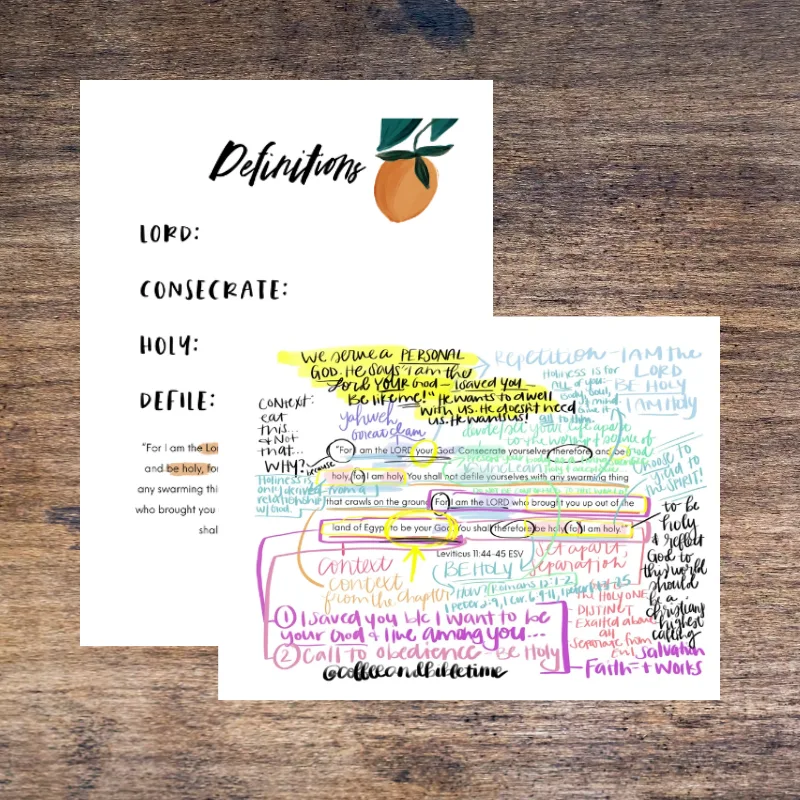 Definitions
LORD:
CONSECRATE:
HOLY:
DEFILE:
"For I am the Lo
and be holy, fo
any swarming thi
who brought you
shal
We serve a PERSONAL
GOD. He says "I am the
Lord YOUR God - I saved you
Be like me!" He wants to dwell
with us. He doesn't need
us. He wants us!
Repetition - I AM the
LORD
BE HOLY
I AM HOLY
Holiness is for
ALL of you:
body, soul,
& mind
Give it
all to Him.
context:
eat
this...
& Not
that...
WHY?
because
yahweh
Great I am
"For I am the LORD your God. Consecrate yourselves therefore, and be
holy, for I am holy. You shall not defile yourselves with any swarming thing
that crawls on the ground. For I am the LORD who brought you up out of the
land of Egypt to be your God. You shall therefore be holy, for I am holy."
Leviticus 11:44-45 ESV
Holiness is
only derived from a
relationship
w/ God.
unclean
choose to
to God
the Spirit!
to be
holy
& reflect
God to
this world
should
be a
christians
highest
calling
context
context
from the chapter
BE HOLY
Romans 12:1-2
1 Peter 2:9, 1 Cor. 6:9-11,
Set apart
separation
The HOLY ONE
DISTINCT
Exalted above
all
separate from
evil
① I saved you b/c I want to be
your God & live among you...
② Call to obedience Be Holy
salvation
Faith = + works
@coffeeandbibletime